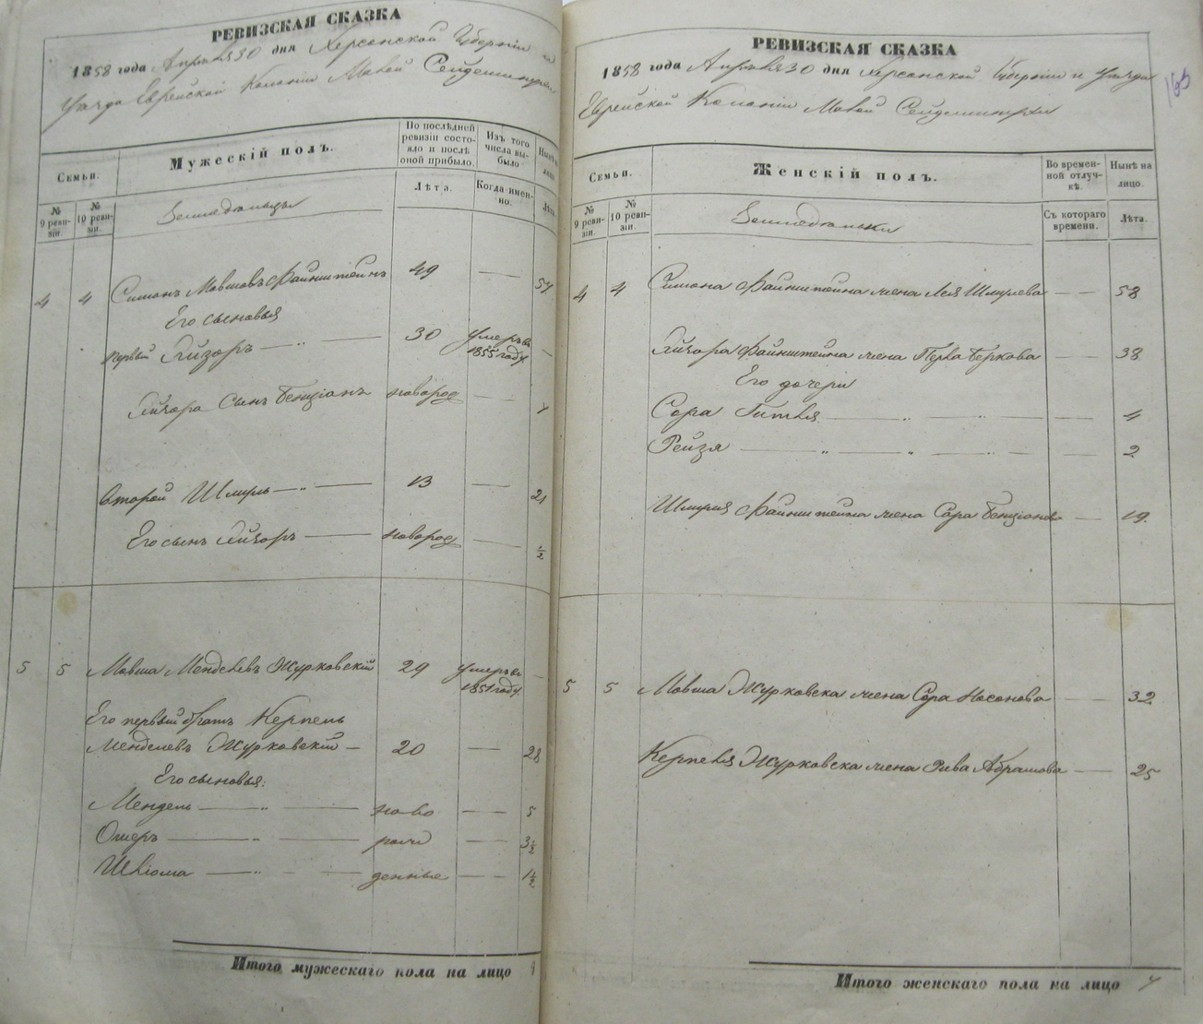 РЕВИЗСКАЯ СКАЗКА
1858 года Апреля 30 дня Херсонской Губернии и
Уезда Еврейской Колонии Малой Сейдеминухи
Семьи.
№ 9 ревизіи.
№ 10 ревизіи.
Мужескій полъ.
По послѣдней ревизіи состояло и послѣ оной прибыло.
Изъ того числа выбыло
Нынѣ на лицо
Лѣта.
Когда именно.
Лѣта.
Земледельцы
4 4 Симонъ Мовшовъ Файнштейнъ 49 — 57
Его сыновья
первый Айзоръ — „ — 30 Умеръ въ 1855 году —
Айзора Сынъ Бенціонъ новород — 7
Второй Шмуль — „ — 13 — 21
Его сынъ Айзоръ — новород — ½
5 5 Мовша Менделевъ Журковскій 29 Умеръ въ 1851 году —
Его первый братъ Керпель
Менделевъ Журковскій — 20 — 28
Его сыновья:
Мендель — „ — ново — 5
Ошеръ — „ — рож — 3½
Шліома — „ — денные — 1½
Итого мужескаго пола на лицо 8
РЕВИЗСКАЯ СКАЗКА
165
1858 года Апреля 30 дня Херсонской Губернии и Уезда
Еврейской Колонии Малой Сейдеминухи
Семьи.
№ 9 ревизіи.
№ 10 ревизіи.
Женскій полъ.
Во временной отлучкѣ.
Нынѣ на лицо.
Съ котораго времени.
Лѣта.
Земледельки
4 4 Симона Файнштейна жена Лея Шмулева — 58
Айзора Файнштейна жена Перла Беркова 38
Его дочери
Сора Гитля — „ — „ — 4
Рейзя — „ — „ — 2
Шмуля Файнштейна жена Сора Бенціонова — 19
5 5 Мовша Журковска жена Сора Носонова — 32
Керпеля Журковска жена Рива Абрамова — 25
Итого женскаго пола на лицо 7